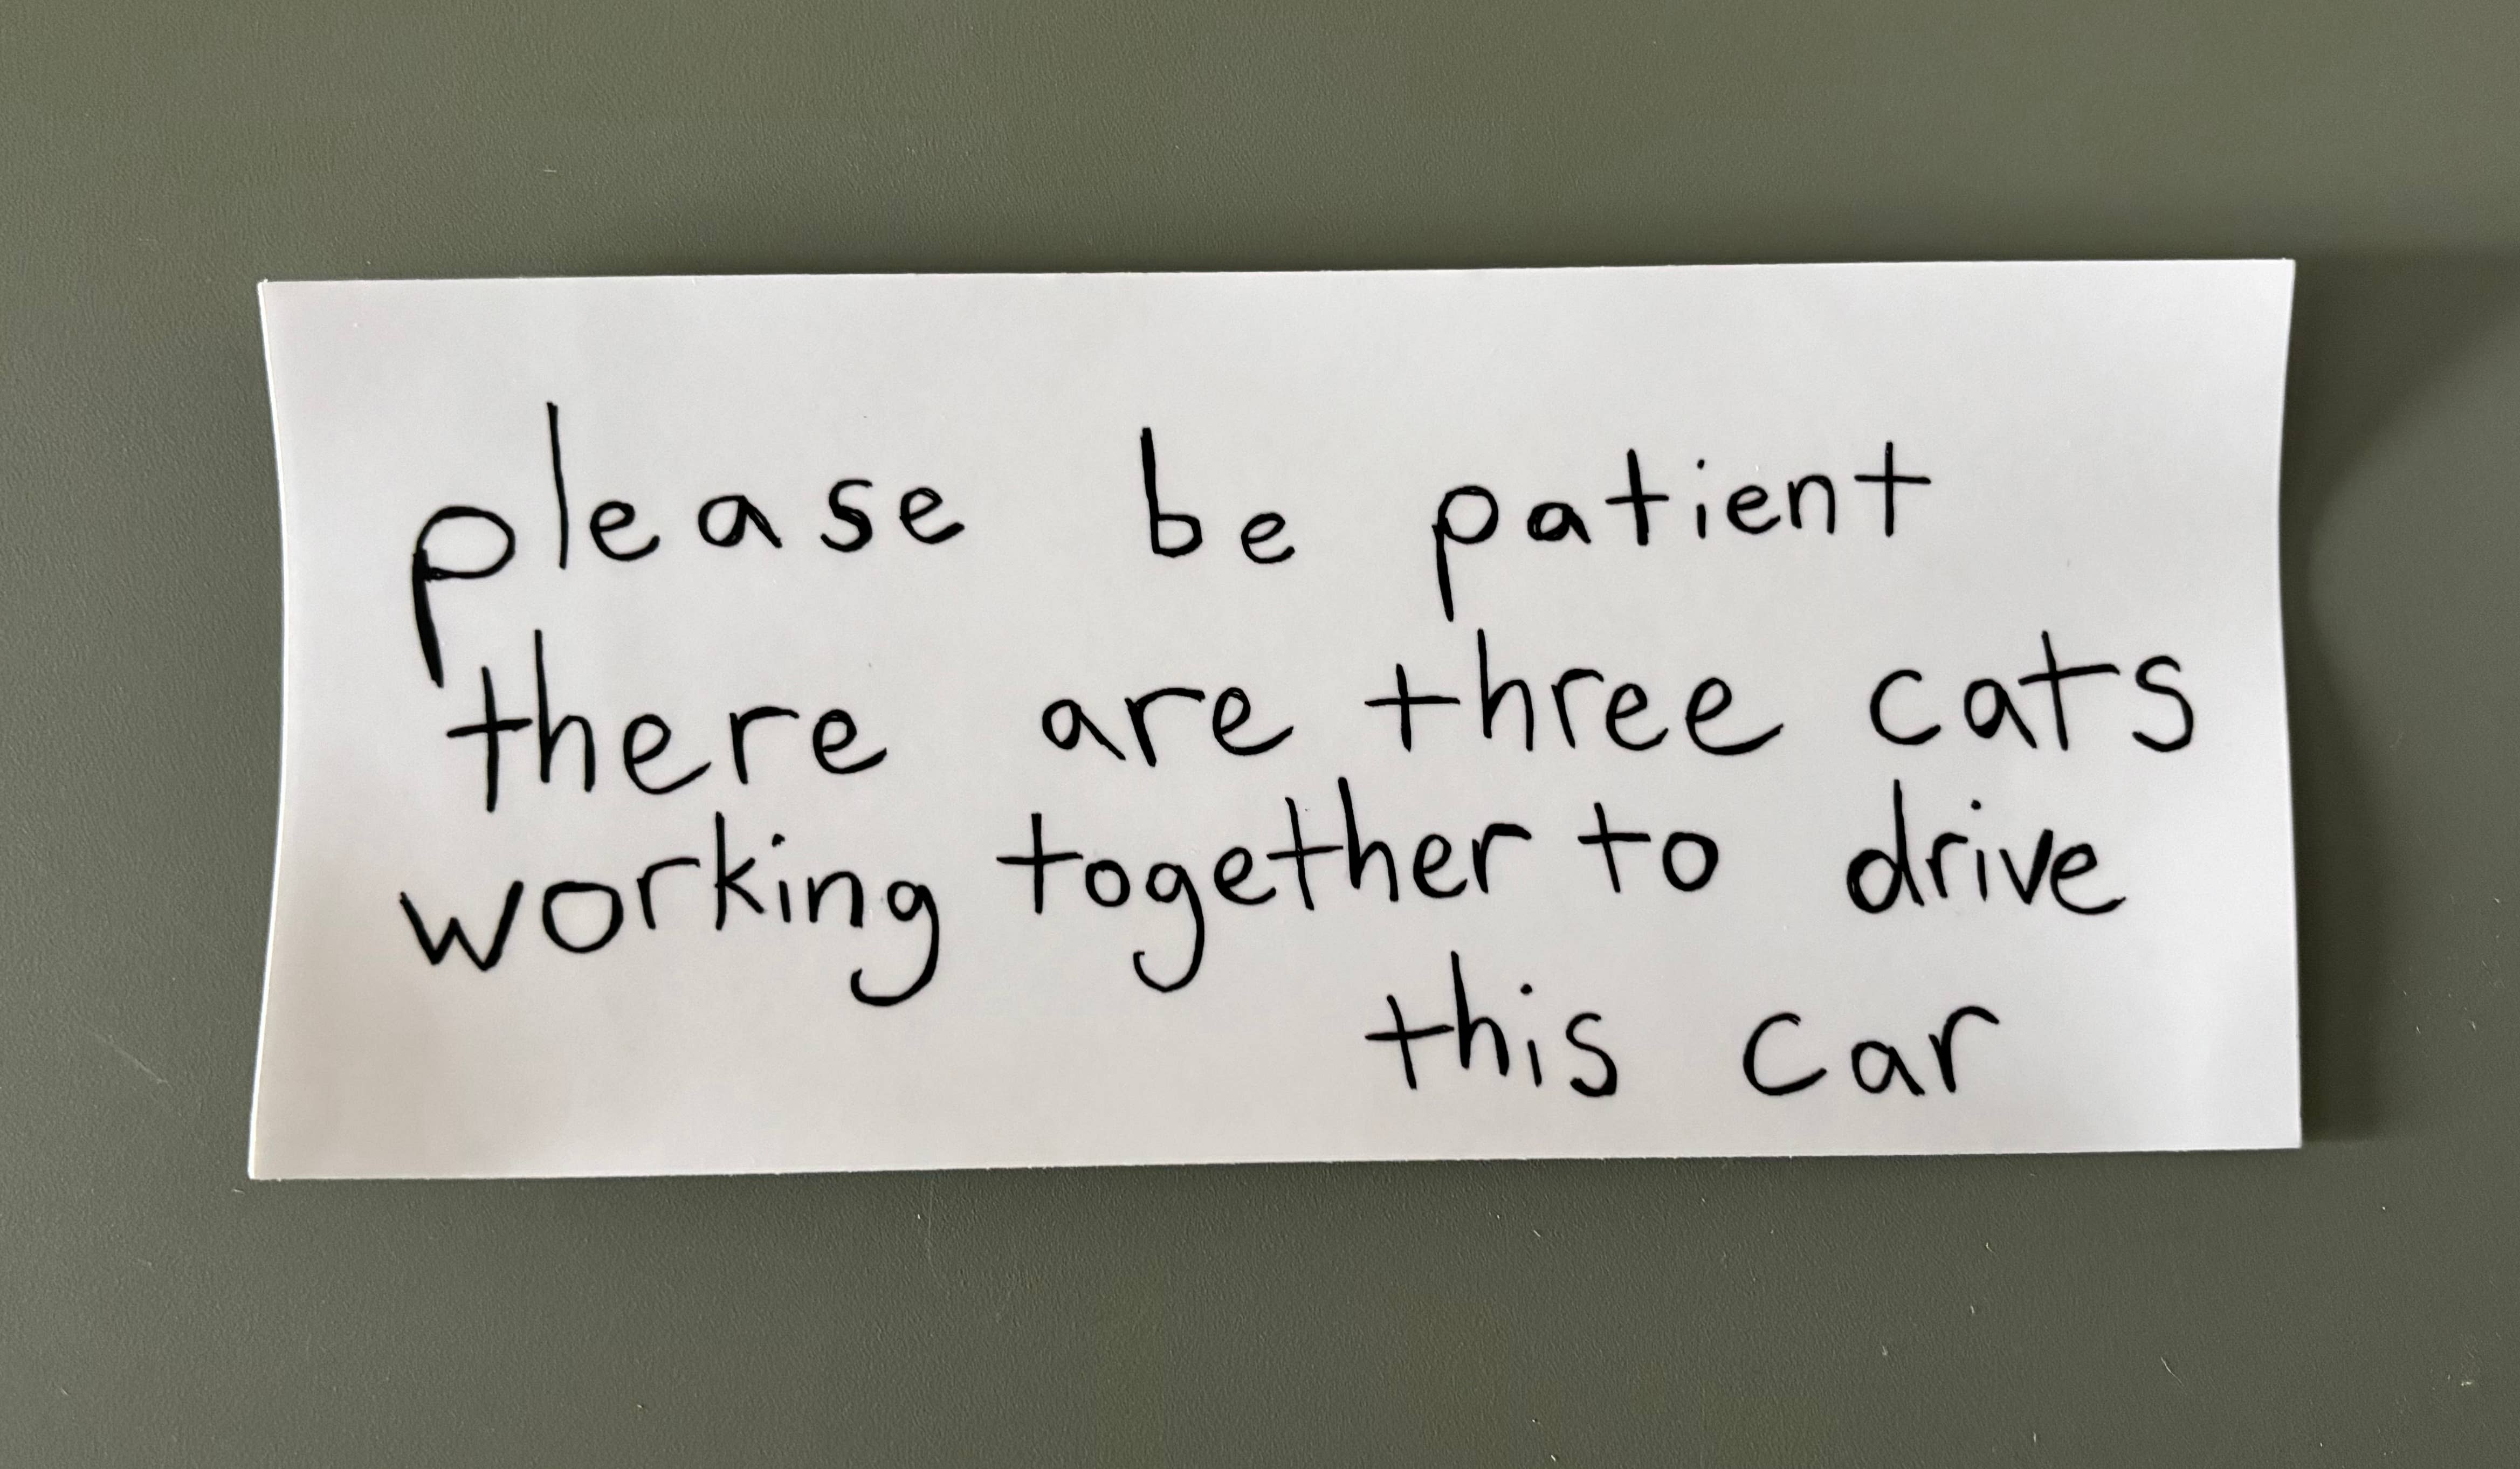 please be patient
there are three cats
working together to drive
this car